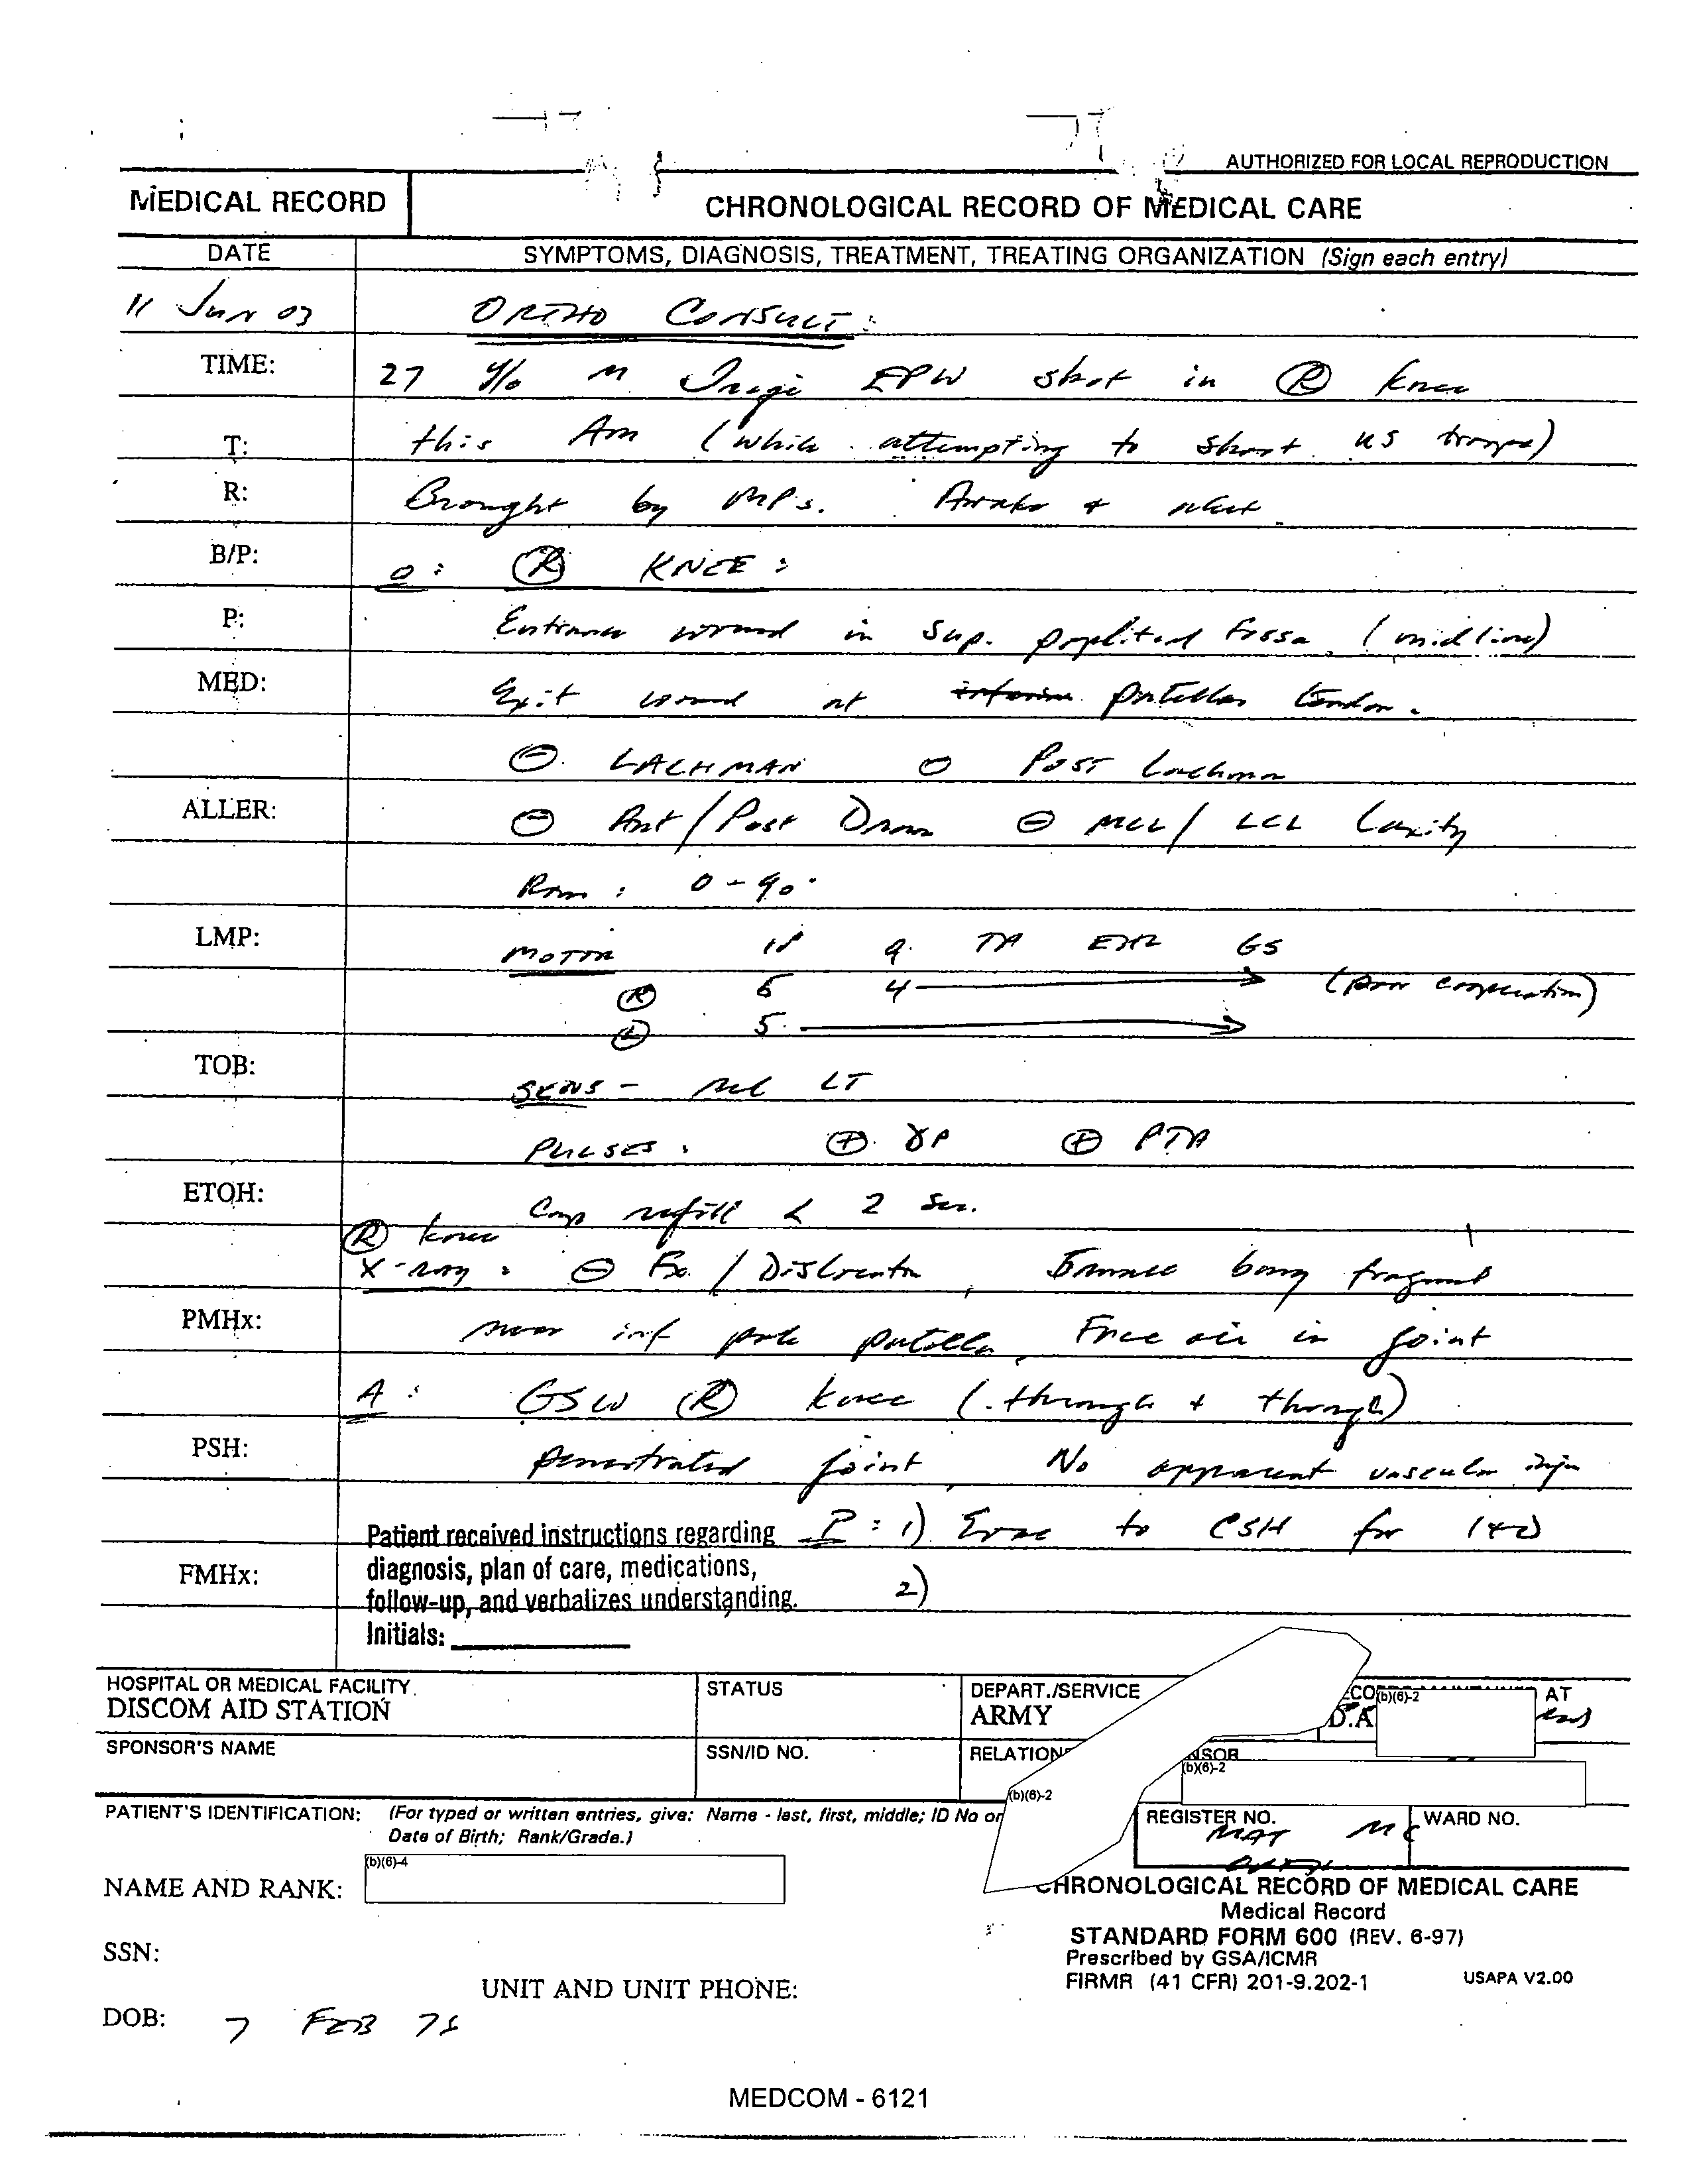 AUTHORIZED FOR LOCAL REPRODUCTION
MEDICAL RECORD
CHRONOLOGICAL RECORD OF MEDICAL CARE
DATE
SYMPTOMS, DIAGNOSIS, TREATMENT, TREATING ORGANIZATION (Sign each entry)
11 Jun 03
ORTHO CONSULT:
TIME:
27 y/o M Iraqi EPW shot in Ⓡ knee
T:
this Am (while attempting to shoot US troops)
R:
Brought by MPs. Awake + alert
B/P:
O: Ⓡ KNEE:
P:
Entrance wound in Sup. popliteal fossa (midline)
MED:
Exit wound at inferior patellar tendon.
⊖ LACHMAN ⊖ Post Lachman
ALLER:
⊖ Ant/Post Draw ⊖ MCL/ LCL Laxity
Rom: 0-90°
LMP:
MOTOR IP Q TA EHL GS
Ⓡ 5 4 → (poor cooperation)
Ⓛ 5 →
TOB:
SENS - LT
PULSES: ⊕ DP ⊕ PTA
ETOH:
Cap refill < 2 sec.
Ⓡ knee
X-ray: ⊖ Fx / Dislocation, bony fragment
PMHx:
near inf pole patella, Free air in joint
A: GSW Ⓡ knee (through + through)
PSH:
penetrated joint, No apparent vascular
P: 1) Evac to CSH for I+D
Patient received instructions regarding
diagnosis, plan of care, medications,
follow-up, and verbalizes understanding.
Initials:
FMHx:
2)
HOSPITAL OR MEDICAL FACILITY
DISCOM AID STATION
STATUS
DEPART./SERVICE
ARMY
AT
D.A
(b)(6)-2
SPONSOR'S NAME
SSN/ID NO.
RELATION
NSOR
(b)(6)-2
(b)(6)-2
PATIENT'S IDENTIFICATION: (For typed or written entries, give: Name - last, first, middle; ID No or
Date of Birth; Rank/Grade.)
REGISTER NO.
WARD NO.
MAJ MC
(b)(6)-4
NAME AND RANK:
CHRONOLOGICAL RECORD OF MEDICAL CARE
Medical Record
STANDARD FORM 600 (REV. 6-97)
Prescribed by GSA/ICMR
FIRMR (41 CFR) 201-9.202-1
USAPA V2.00
SSN:
UNIT AND UNIT PHONE:
DOB: 7 FEB
MEDCOM - 6121